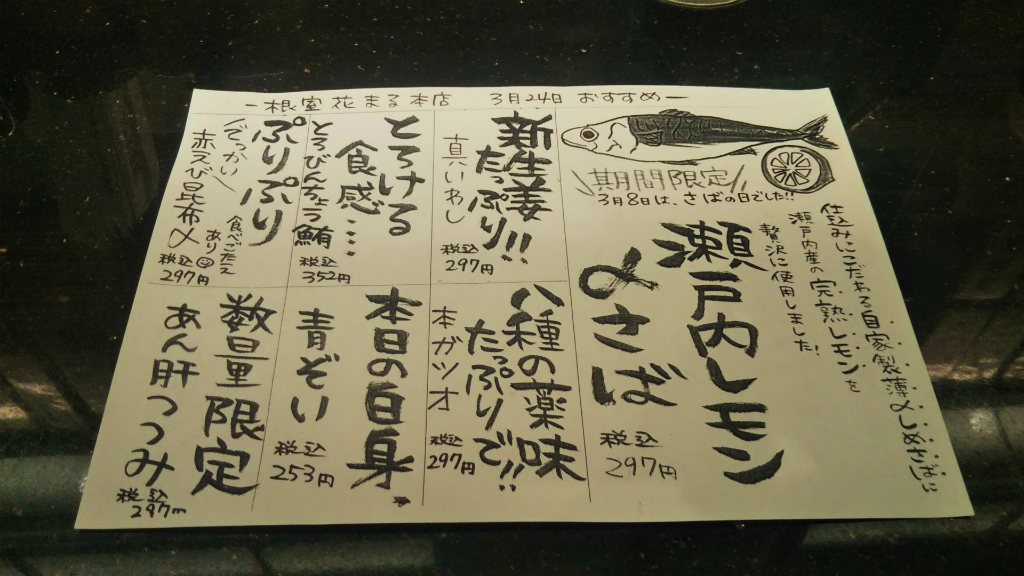 ー根室花まる本店 3月24日 おすすめー
期間限定
3月8日は、さばの日でした!!
仕込みにこだわる自家製薄〆しめさばに
瀬戸内産の完熟レモンを
贅沢に使用しました!
瀬戸内レモン
〆さば
税込
297円
新生姜
たっぷり!!
真いわし
税込
297円
とろける
食感…
とろびんちょう鮪
税込
352円
ぷりぷり
でっかい
赤えび昆布〆
食べごたえ
あり
税込
297円
八種の薬味
たっぷりで!!
本ガツオ
税込
297円
本日の白身
青ぞい
税込
253円
数量限定
あん肝つつみ
税込
297円